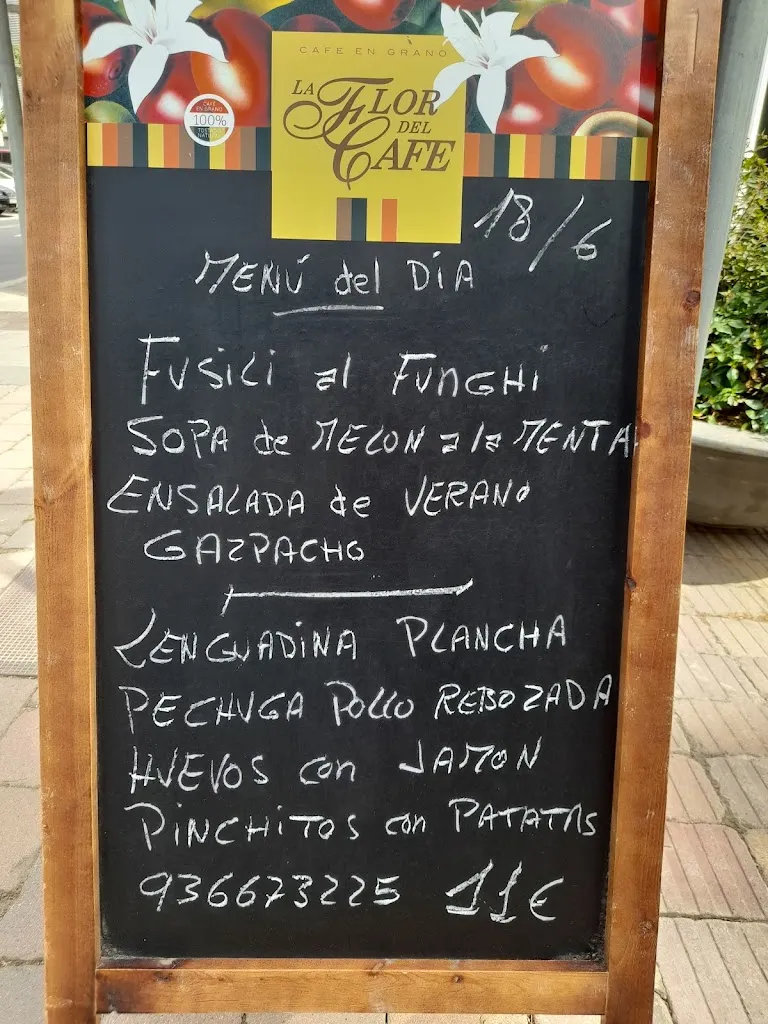 CAFE EN GRANO
LA FLOR
DEL
CAFE
CAFÉ
EN GRANO
100%
18/6
MENÚ del DÍA
FUSILI al FUNGHI
SOPA de MELON a la MENTA
ENSALADA de VERANO
GAZPACHO
LENGUADINA PLANCHA
PECHUGA POLLO REBOZADA
HUEVOS con JAMON
PINCHITOS con PATATAS
936673225 11€